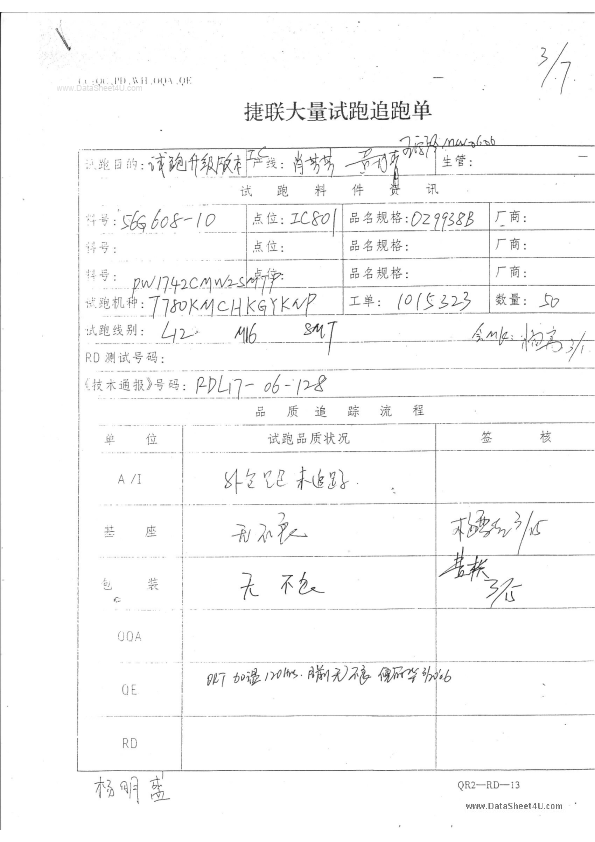 3/7
CC:QC,PD,WH,OQA,QE
www.DataSheet4U.com
捷联大量试跑追跑单
试跑目的: 试跑升级版本IC 产线: 肖芳芳 生管:
试 跑 料 件 资 讯
料号: 56G608-10 点位: IC801 品名规格: OZ9938B 厂商:
料号: 点位: 品名规格: 厂商:
料号: 点位: 品名规格: 厂商:
PW1742CMW2SM77P
试跑机种: T780KMCHKGYKNP 工单: 1015323 数量: 50
试跑线别: L12 M16 SMT 3/1
RD 测试号码:
《技术通报》号码: RDL17-06-128
品 质 追 踪 流 程
单 位 试跑品质状况 签 核
A/I 未追踪.
基 座 无不良 3/15
包 装 无 不良 3/15
OQA
QE ORT 加湿 120hrs. 目前无不良
RD
杨明蓝
QR2—RD—13
www.DataSheet4U.com